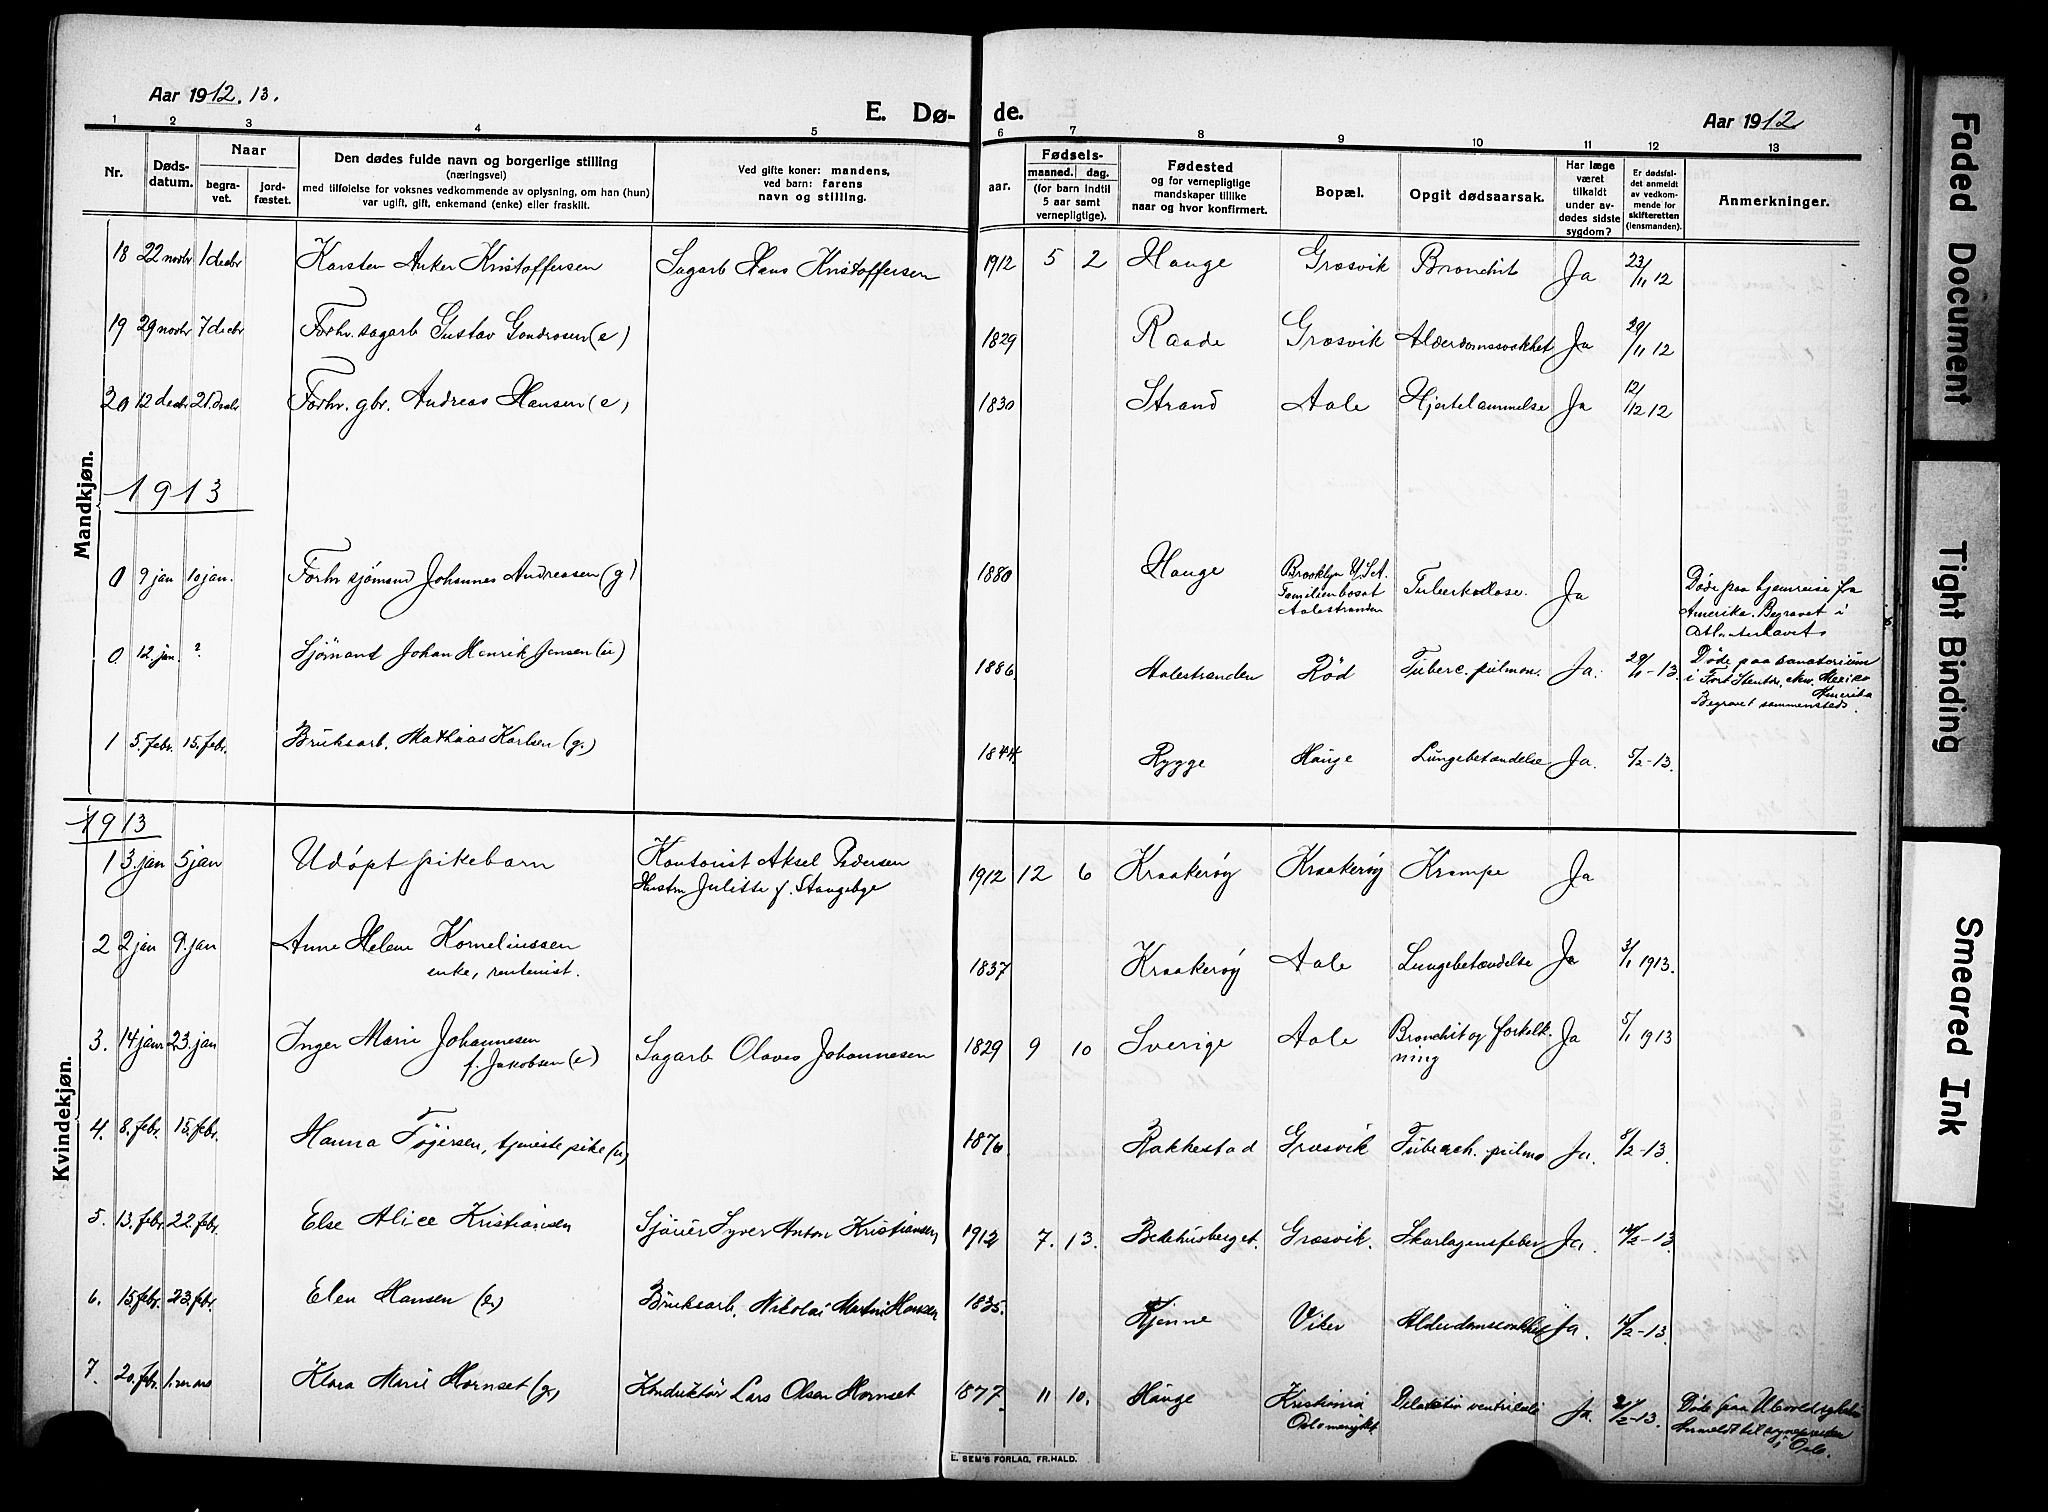 Aar 1912. 13.
E. Dø- de.
Aar 1912
1 2 3 4 5 6 7 8 9 10 11 12 13
Nr.
Døds-
datum.
Naar
begra-
vet.
jord-
fæstet.
Den dødes fulde navn og borgerlige stilling
(næringsvei)
med tilføielse for voksnes vedkommende av oplysning, om han (hun)
var ugift, gift, enkemand (enke) eller fraskilt.
Ved gifte koner: mandens,
ved barn: farens
navn og stilling.
Fødsels-
aar.
maaned. dag.
(for barn indtil
5 aar samt
vernepligtige).
Fødested
og for vernepligtige
mandskaper tillike
naar og hvor konfirmert.
Bopæl.
Opgit dødsaarsak.
Har læge
været
tilkaldt
under av-
dødes sidste
sygdom?
Er dødsfal-
det anmeldt
av vedkom-
mende for
skifteretten
(lensmanden).
Anmerkninger.
Mandkjøn.
18 22 novbr 1 decbr Karsten Anker Kristoffersen Sagarb Hans Kristoffersen 1912 5 2 Hauge Græsvik Bronchit Ja 23/11 12
19 29 novbr 7 decbr Forhv. sagarb Gustav Gundrosen (e) 1829 Raade Græsvik Alderdomssvakhet Ja 29/11 12
20 12 decbr 21. decbr Forhv. gbr. Andreas Hansen (e) 1830 Strand Aale Hjertelammelse Ja 12/12 12
1913
0 9 jan 10 jan. Forhv sjømand Johannes Andreasen (g) 1880 Hauge Brooklyn U.S.A. Familien bosat Aalestranden Tuberkulose. Ja Døde paa hjemreise fra
Amerika. Begravet i
Atlanterhavet.
0 12. jan. ? Sjømand Johan Henrik Jensen (u) 1886. Aalestranden Rød Tuberc. pulmon. Ja. 29/1-13. Døde paa sanatorium
i Fort Stanton, New Mexico
Amerika
Begravet sammensteds.
1 5. febr. 15. febr. Bruksarb. Mathias Karlsen (g.) 1844. Rygge Hauge Lungebetændelse Ja. 5/2-13.
Kvindekjøn.
1913
1 3. jan 5 jan Udøpt pikebarn Kontorist Aksel Pedersen
Hustru Julitte f. Stangebye 1912 12 6 Kraakerøy Kraakerøy Krampe Ja
2 2 jan 9. jan Anne Helene Korneliussen
enke, rentenist. 1837 Kraakerøy Aale Lungebetændelse Ja 3/1 1913.
3. 14 janr 23. jan Inger Marie Johannesen
f. Jakobsen (e) Sagarb Olaves Johannesen 1829 9 10 Sverige Aale Bronchit og forkølk-
ning Ja 5/1 1913
4. 8. febr. 15. febr. Hanna Tøgersen, tjeneste pike (u) 1876 Rakkestad Græsvik Tuberch. pulmo Ja. 8/2-13.
5. 13. febr. 22. febr. Else Alice Kristiansen Sjauer Syver Anton Kristiansen, 1912 7. 13. Bedehusberget. Græsvik. Skarlagensfeber Ja, 14/2-13.
6. 15. febr. 23. febr. Elen Hansen (e.) Bruksarb. Nikolai Martin Hansen 1835. Kjenne Viker Alderdomssvakhet Ja. 15/2-13.
7. 20. febr. 1. mars Klara Marie Hornset (g.) Konduktør Lars Olsen Hornset 1877. 11 10. Hauge Kristiania
Oslo menighet Dilatatio ventriculi Ja. 21/2-13. Døde paa Ullevold sykehus
Anmeldt til sognepresten
i Oslo.
E. SEM'S FORLAG, FR.HALD.
Faded Document
Tight Binding
Smeared Ink